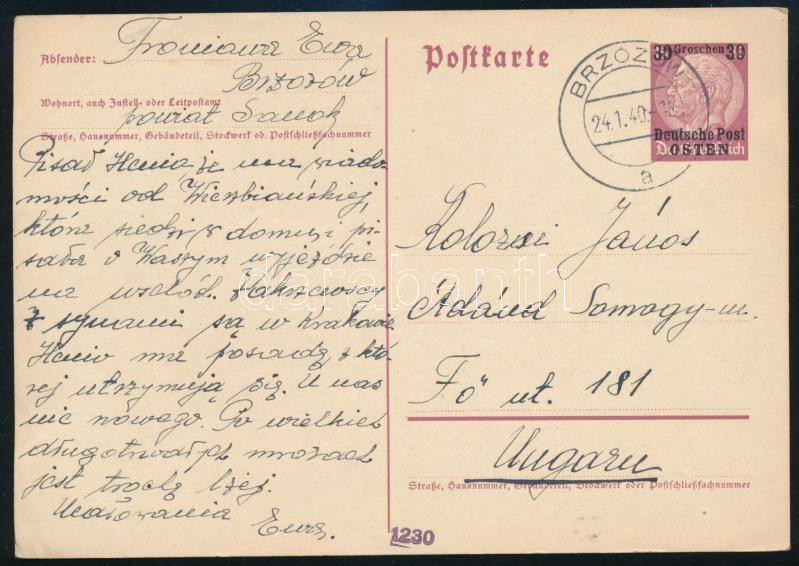 Absender: Froniawa Ewa
Brzozów
Wohnort, auch Zustell- oder Leitpostamt
powiat Sanok
Straße, Hausnummer, Gebäudeteil, Stockwerk od. Postschließfachnummer
Pisał Henio że ma wiado-
mości od Wierzbiańskiej,
która siedzi w domu i pi-
sała o Waszym wyjeździe
na wschód. Zakrzewscy
z synami są w Krakowie
Henio ma posadę z któ-
rej utrzymują się. U nas
nic nowego. Po wielkich
długotrwałych mrozach
jest trochę lżej.
Ucałowania
Ewa.
Postkarte
30 Groschen 30
Deutsche Post
OSTEN
Deutsches Reich
BRZOZOW
24.1.40.
a
Kolozsi János
Ádánd Somogy-m.
Fő ut. 181
Ungarn
Straße, Hausnummer, Gebäudeteil, Stockwerk oder Postschließfachnummer
1230
darabanth